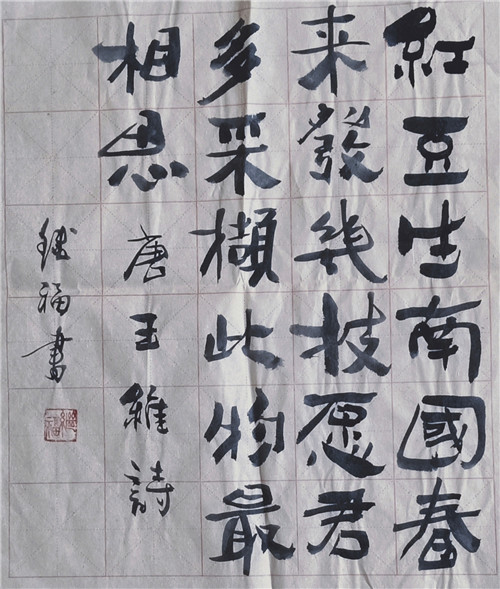 紅豆生南國春
来發幾枝愿君
多采擷此物最
相思唐王維詩
福書